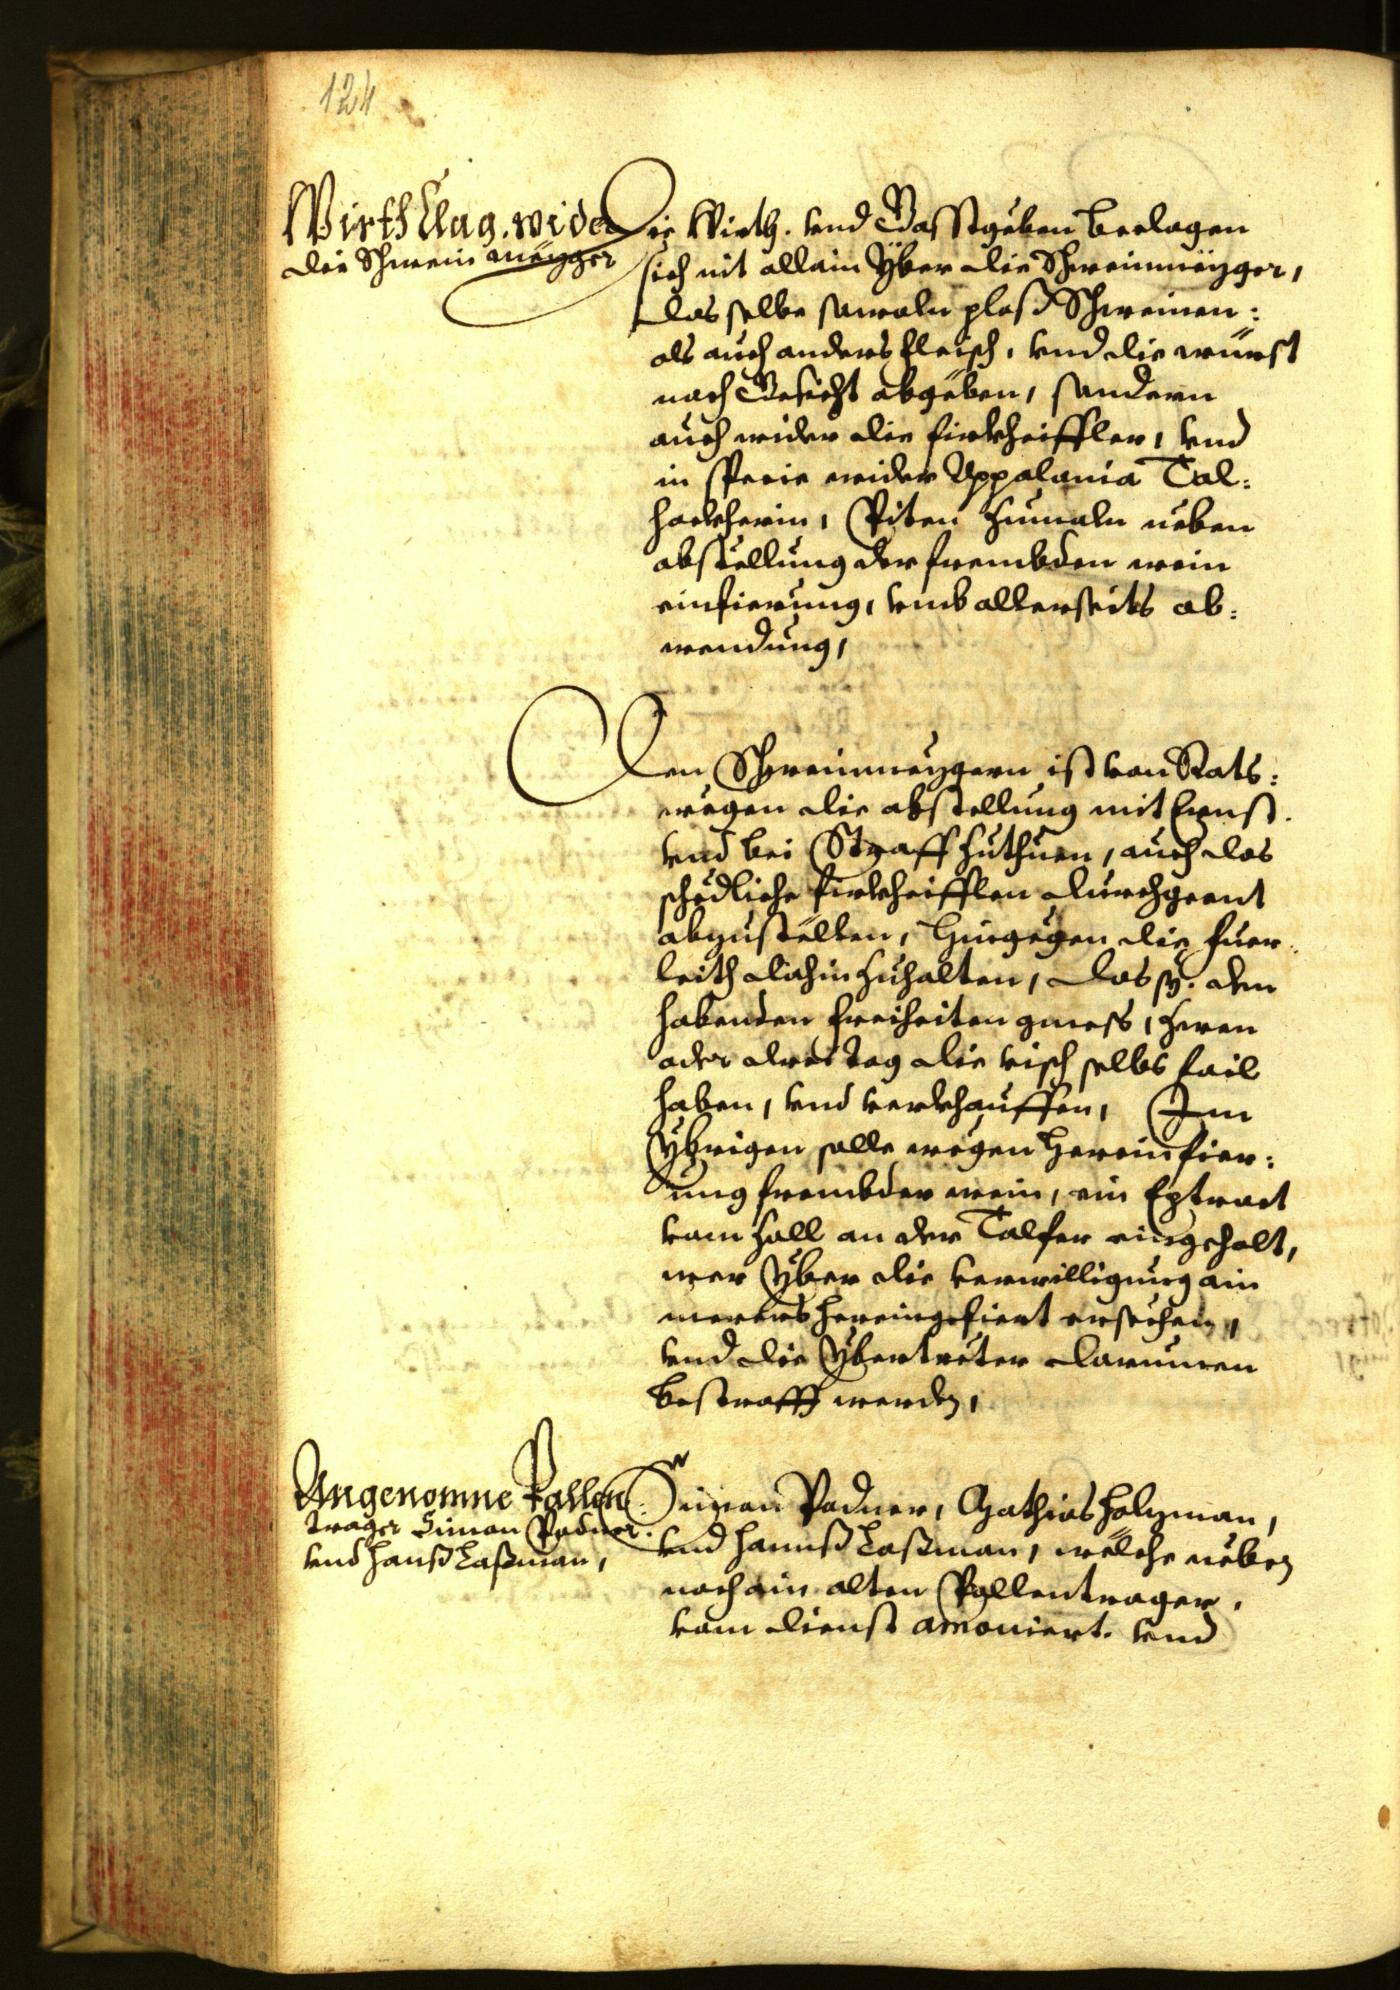 124
Wirth Clag. wider
die Schwein mezger
Die Wirth. vnd Gasstgeben beclagen
sich nit allain yber die Schweinmezger,
das selbe sowoln ploß Schweinen:
als auch anders fleisch, vnd die würst
nach Gesicht abgeben, sondern
auch wider die firkheiffler, vnd
in specie wider Appalonia Tal:
hackherin, Piten zumaln neben
abstellung der frembden wein
einfierung, vmb allerseits ab:
wendung,
Den Schweinmezgern ist von Rats:
wegen die abstellung mit Ernst.
vnd bei Straff zuthuen, auch das
schedliche firkheifflen durchgeent
abzustellen, hingegen die fuer
leith dahin zuhalten, das sy. den
habenden freiheiten gmess, zwen
oder drei tag die visch selbs fail
haben, vnd verkhauffen, Im
ybrigen solle wegen hereinfier:
ung frembder wein, ein Extract
vom zoll an der Talfer eingeholt,
wer yber die verwilligung ain
merers hereingefiert ersechen,
vnd die ybertreter darumen
bestrafft werden,
Angenomne Pallen
trager Simon Padner.
vnd Hanß Laßman,
Simon Padner, Mathias Holzman,
vnd Hannß Laßman, welche neben
noch ain alten Pallentrager,
vom dienst amoviert. vnd